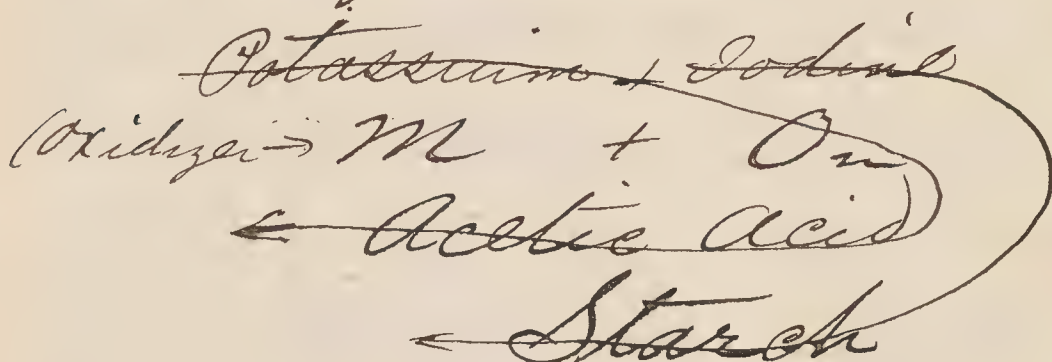 Potassium + Iodine
(Oxidizer → M + On
Acetic Acid
Starch